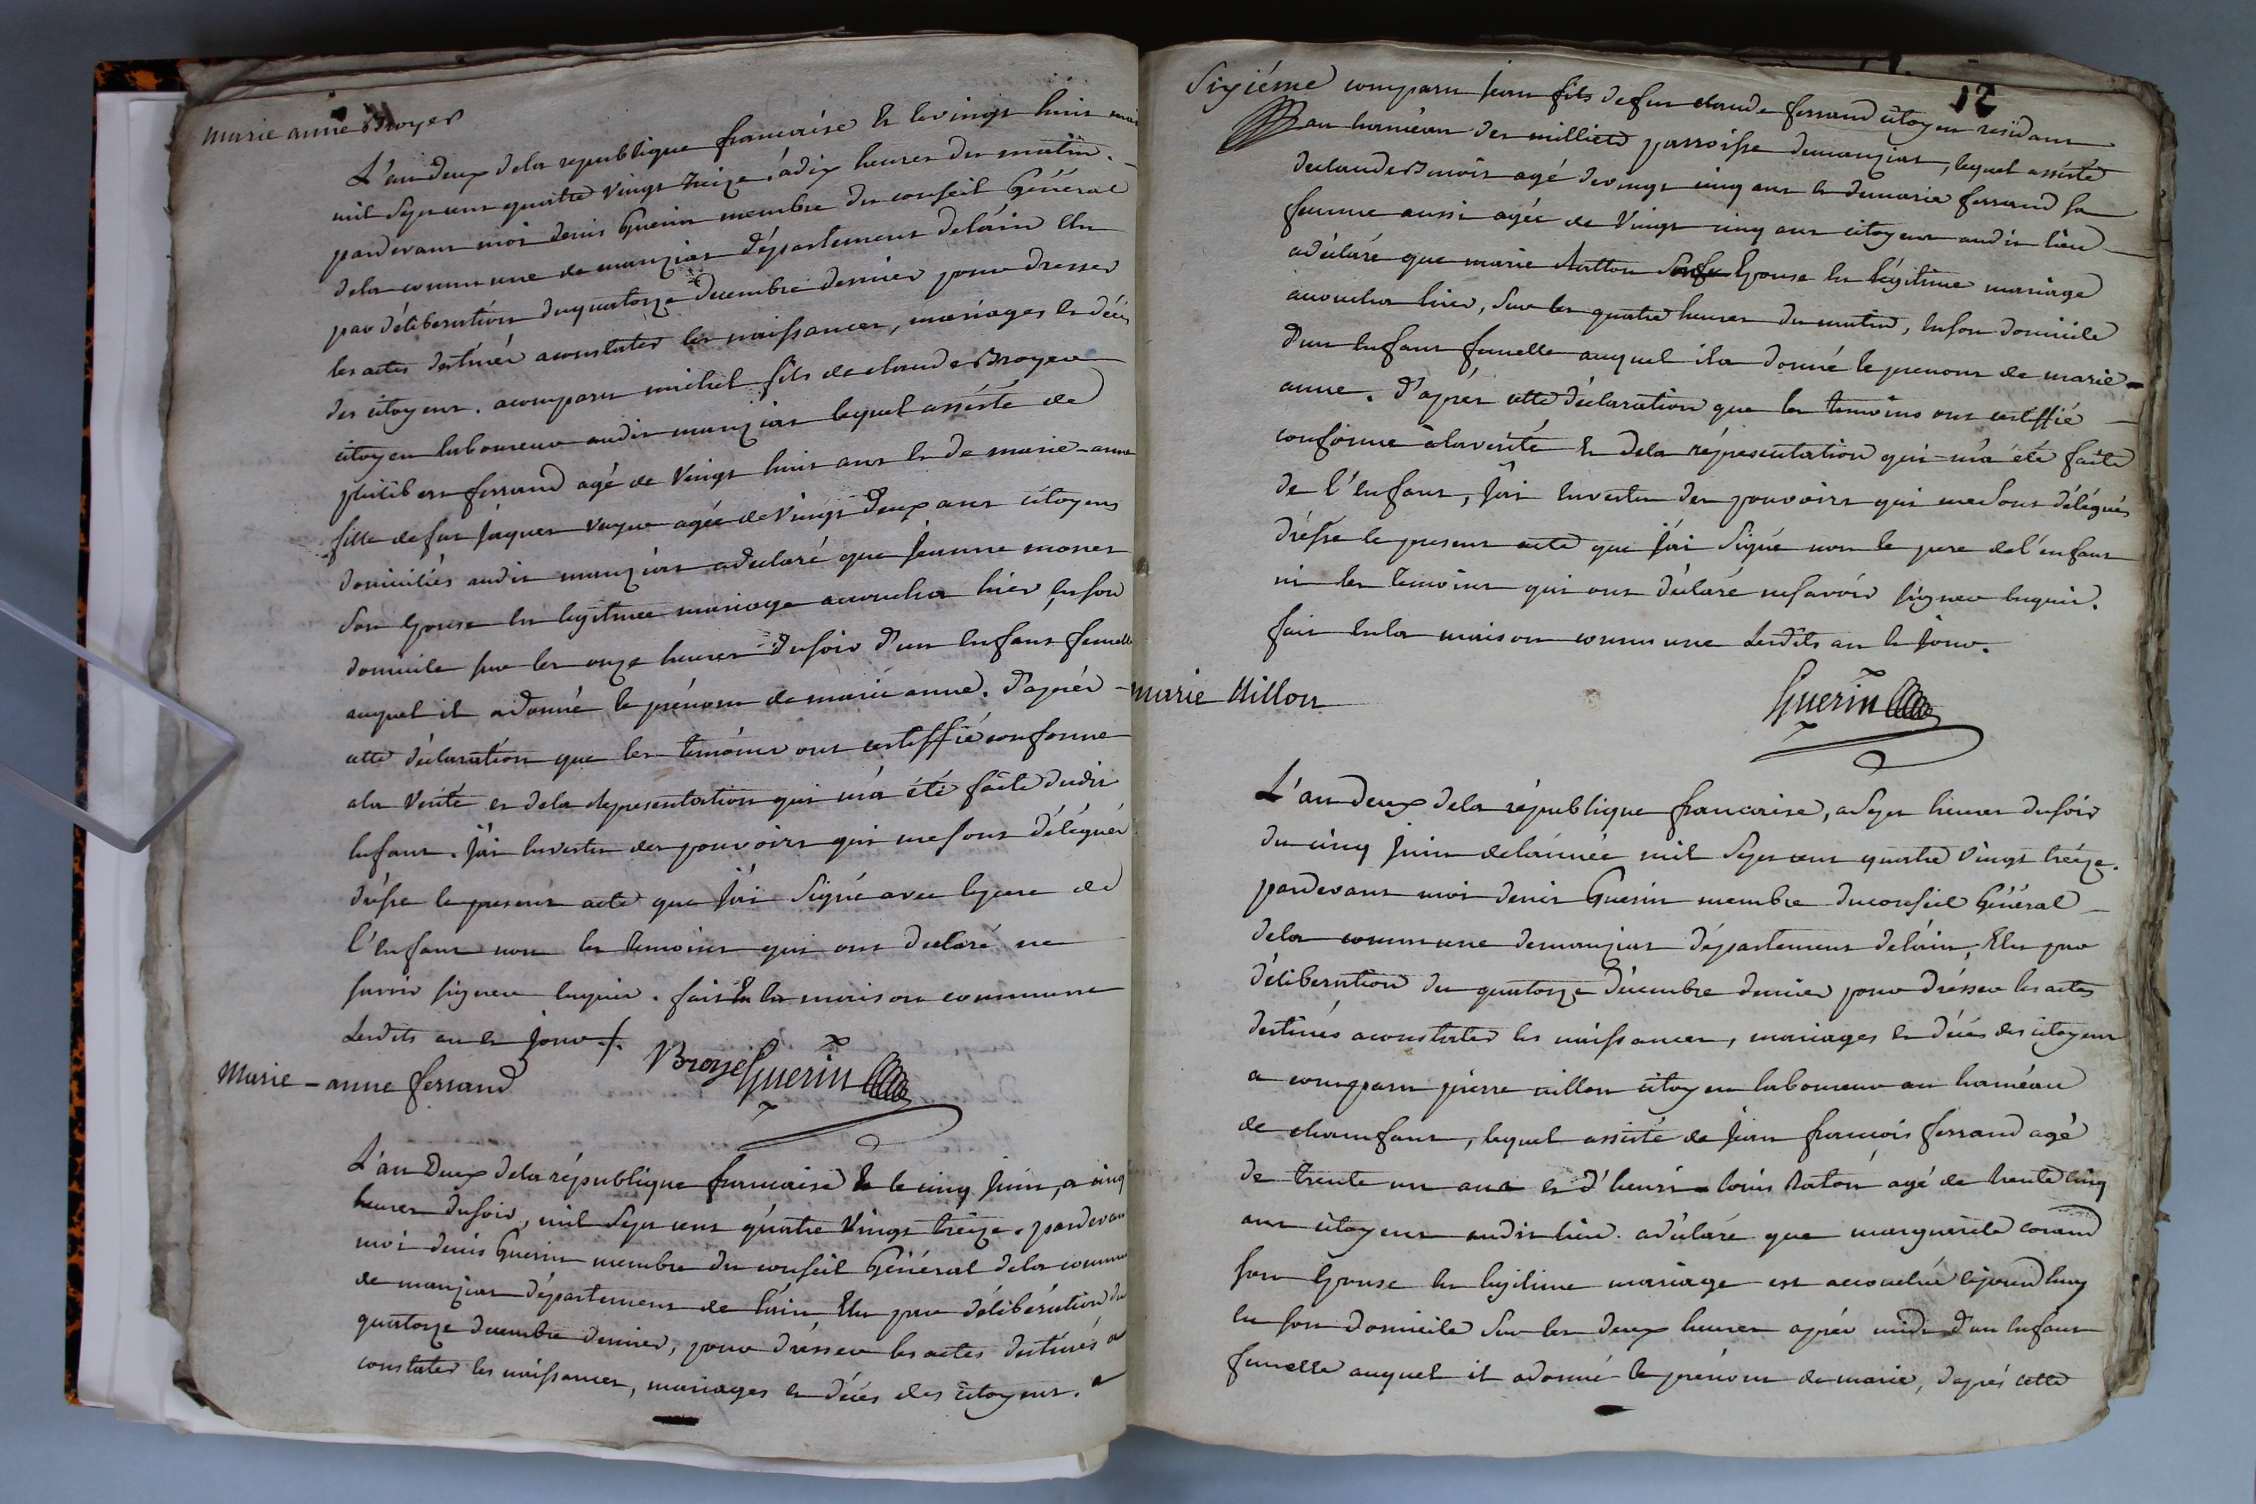 marie anne Broyer
L'an deux dela republique francaise & le vingt huit mai
mil sept cent quatre vingt treize, à dix heures du matin.
pardevant moi denis Guerin membre du conseil Général
dela commune de manziat département delain Elu
par délibération du quatorze decembre dernier pour dresser
les actes destinés a constater les naissances, mariages et décès
des citoyens. a comparu michel fils de claude Broyer
citoyen laboureur audit manziat lequel assisté de
philibert ferrand agé de vingt huit ans et de marie-anne
fille de fut jaques agée de vingt deux ans citoyens
domiciliés audit manziat a declaré que jeanne
son Epouse en legitime mariage accoucha hier en son
domicile sur les onze heures du soir d'un Enfant femelle
auquel il a donné le prénom de marie anne. d'après
cette déclaration que les temoins ont certiffié conforme
a la verité et dela representation qui m'a été faite dudit
Enfant. j'ai Envertu des pouvoirs qui me sont délégués
dréssé le present acte que j'ai signé avec le pere de
l'Enfant non les temoins qui ont declaré ne
savoir signer enquis. fait En la maison commune
lesdits an et jour.
Broyer Guerin
Marie-anne ferrand
L'an Deux dela république francaise & le cinq juin, a cinq
heures du soir, mil sept cent quatre vingt treize. pardevant
moi denis Guerin membre du conseil Général dela commune
de manziat département de lain Elu par délibération du
quatorze decembre dernier, pour drésser les actes destinés a
constater les naissances, mariages et décés des citoyens. a
12
sixiéme comparu jean fils de fut claude ferrand citoyen résidant
au haméau des milliets parroisse demanziat, lequel assisté
de claude Benoit agé de vingt cinq ans et de marie ferrand sa
femme aussi agée de vingt cinq ans citoyens audit lieu
a déclaré que marie Epouse En légitime mariage
accoucha hier, sur les quatre heures du matin, en son domicile
d'un Enfant femelle auquel il a donné le prenom de marie-
anne. d'après cette déclaration que les temoins ont certiffié
conforme à la verité & dela répresentation qui m'a été faite
de l'Enfant, j'ai Envertu des pouvoirs qui me sont délégués
dréssé le present acte que j'ai signé non le pere de l'enfant
ni les temoins qui ont déclaré ne savoir signer enquis.
fait En la maison commune lesdits an et jour.
Guerin
marie Uillon
L'an deux dela république francaise, a sept heures du soir
du cinq juin de lannée mil sept cent quatre vingt treize.
pardevant moi denis Guerin membre du conseil Général
dela commune demanziat département delain, Elu par
délibération du quatorze décembre dernier pour drésser les actes
destinés a constater les naissances, mariages et décés des citoyens
a comparu pierre uillon citoyen laboureur au haméau
de chamfant, lequel assisté de jean francois ferrand agé
de trente un ans et d'henri-louis agé de trente cinq
ans citoyens audit lieu. a déclaré que marguerite
son Epouse En legitime mariage est accouchée
En son domicile sur les deux heures après midi d'un Enfant
femelle auquel il a donné le prénom de marie, d'après cette